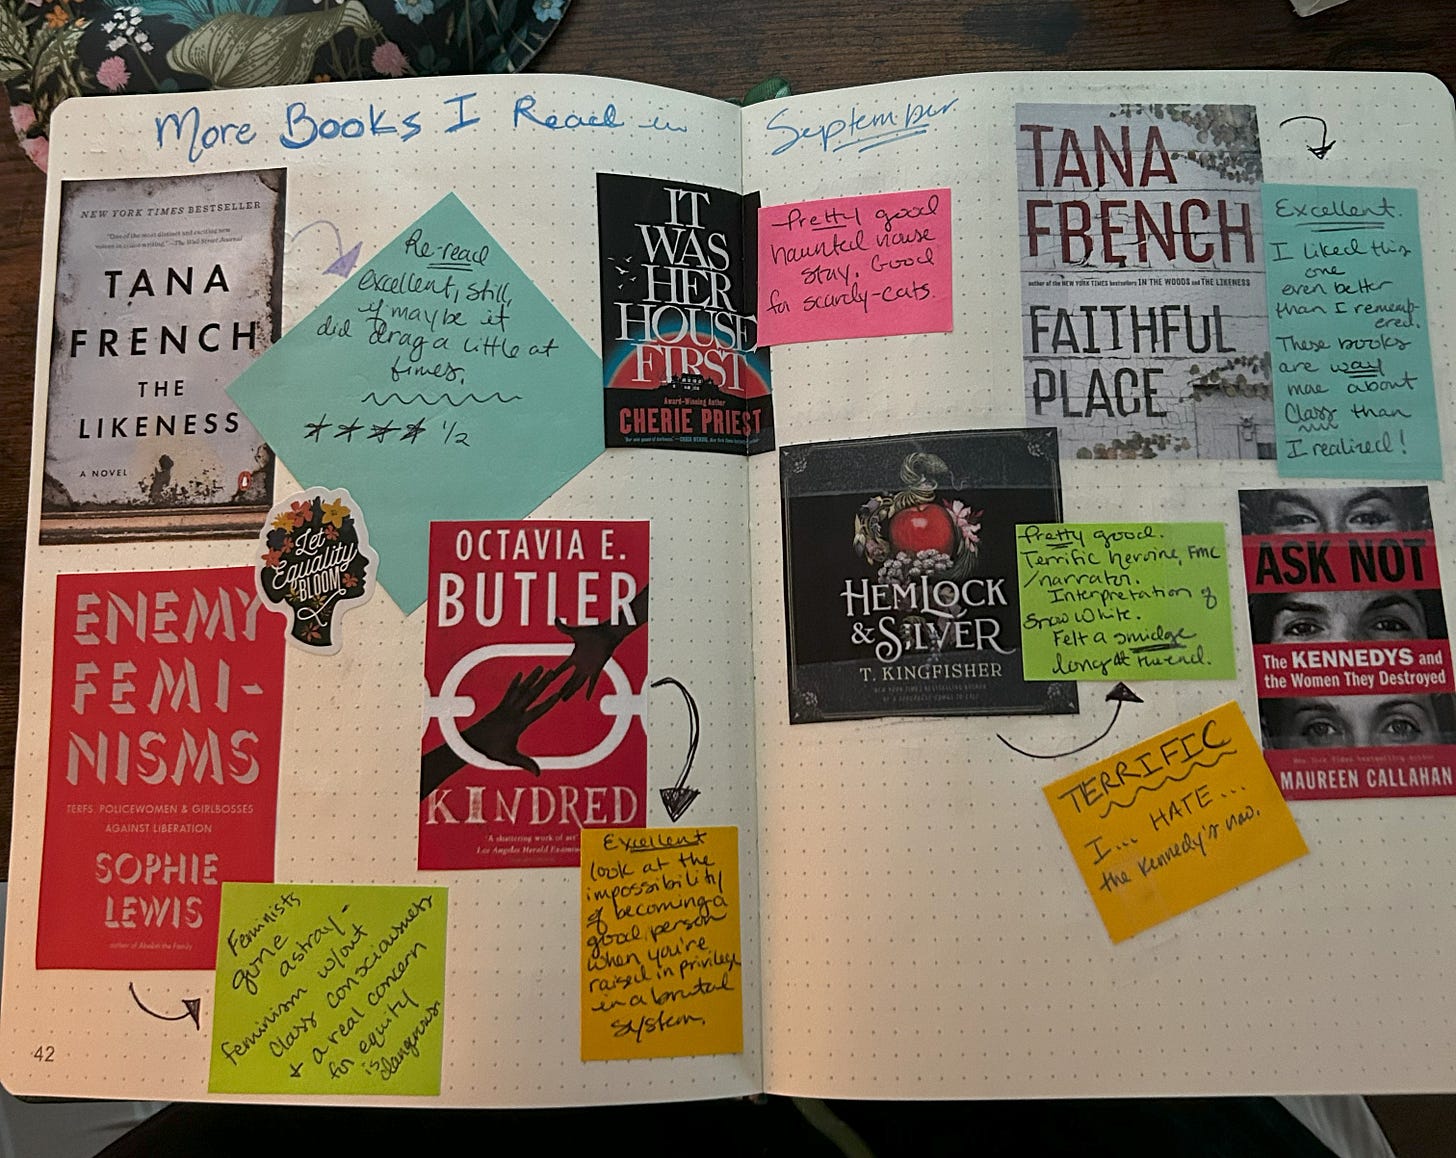 More Books I Read in September
NEW YORK TIMES BESTSELLER
"One of the most distinct and exciting new
voices in crime writing." —The Wall Street Journal
TANA
FRENCH
THE
LIKENESS
A NOVEL
Re-read
excellent, still,
if maybe it
did drag a little at
times.
★★★★ 1/2
IT
WAS
HER
HOUSE
FIRST
Award-Winning Author
CHERIE PRIEST
Pretty good
haunted house
stay. Good
for scaredy-cats.
TANA
FRENCH
author of the NEW YORK TIMES bestsellers IN THE WOODS and THE LIKENESS
FAITHFUL
PLACE
Excellent.
I liked this
one
even better
than I rememb-
ered.
These books
are way
more about
Class than
I realized!
Let
Equality
BLOOM
ENEMY
FEMI-
NISMS
TERFS, POLICEWOMEN & GIRLBOSSES
AGAINST LIBERATION
SOPHIE
LEWIS
author of Abolish the Family
Feminists
gone
astray -
feminism w/out
Class consciousness
+ a real concern
for equity
is dangerous
OCTAVIA E.
BUTLER
KINDRED
'A shattering work of art'
Los Angeles Herald
Excellent
look at the
impossibility
of becoming a
good person
when you're
raised in privilege
in a brutal
system.
HEMLOCK
& SILVER
T. KINGFISHER
Pretty good.
Terrific heroine, FMC
/narrator.
Interpretation of
Snow White.
Felt a smidge
long at the end.
ASK NOT
The KENNEDYS and
the Women They Destroyed
New York Times bestselling author
MAUREEN CALLAHAN
TERRIFIC
I... HATE...
the Kennedy's now.
42